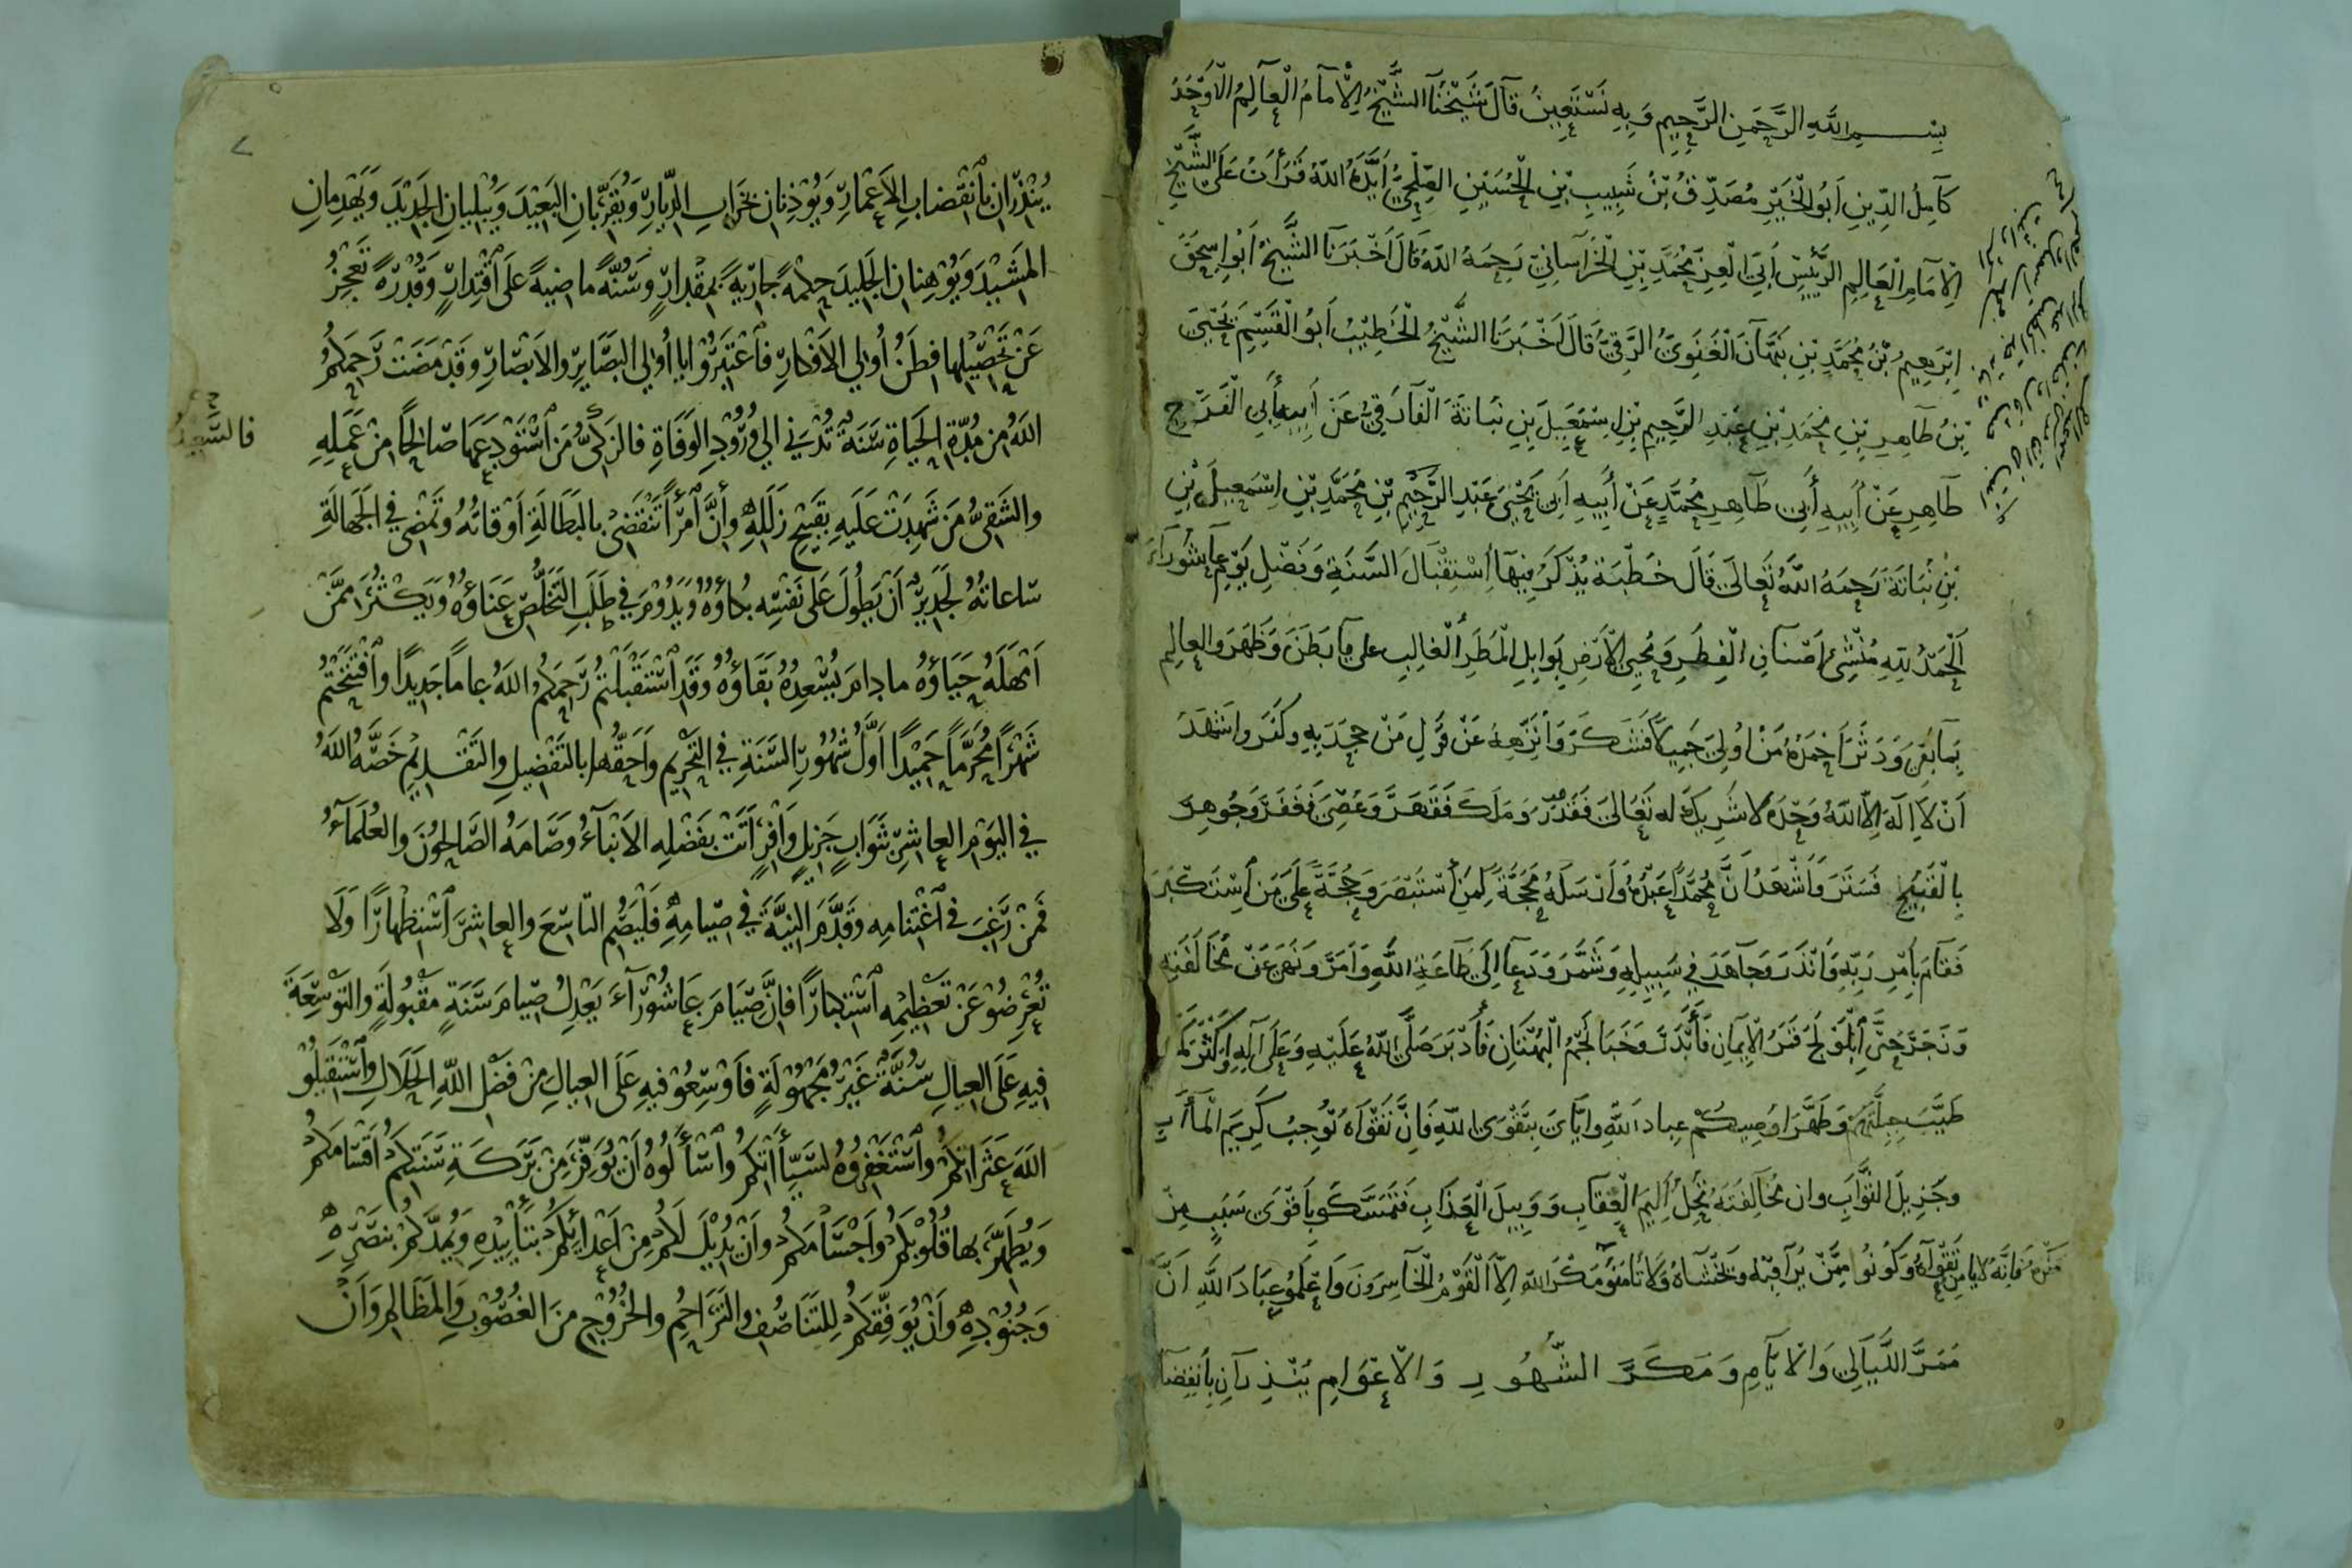 بِسْمِ اللَّهِ الرَّحْمَنِ الرَّحِيمِ وَبِهِ نَسْتَعِينُ قَالَ شَيْخُنَا الشَّيْخُ الْإِمَامُ الْعَالِمُ الْأَوْحَدُ
كَامِلُ الدِّينِ أَبُو الْخَيْرِ مُصَدِّقُ بْنُ شَبِيبِ بْنِ الْحُسَيْنِ الصِّلْحِيُّ أَيَّدَهُ اللَّهُ قَرَأْتُ عَلَى الشَّيْخِ
الْإِمَامِ الْعَالِمِ الرَّئِيسِ أَبِي الْعِزِّ مُحَمَّدِ بْنِ الْخُرَاسَانِيِّ رَحِمَهُ اللَّهُ قَالَ أَخْبَرَنَا الشَّيْخُ أَبُو إِسْحَقَ
إِبْرَهِيمُ بْنُ مُحَمَّدِ بْنِ نَبْهَانَ الْغَنَوِيُّ الرَّقِّيُّ قَالَ أَخْبَرَنَا الشَّيْخُ الْخَطِيبُ أَبُو الْقَسِمِ يَحْيَى
بْنُ طَاهِرِ بْنِ مُحَمَّدِ بْنِ عَبْدِ الرَّحِيمِ بْنِ إِسْمَعِيلَ بْنِ نُبَاتَةَ الْفَارِقِيُّ عَنْ أَبِيهِ أَبِي الْفَرَجِ
طَاهِرٍ عَنْ أَبِيهِ أَبِي طَاهِرٍ مُحَمَّدٍ عَنْ أَبِيهِ أَبِي يَحْيَى عَبْدِ الرَّحِيمِ بْنِ مُحَمَّدِ بْنِ إِسْمَعِيلَ بْنِ
بْنِ نُبَاتَةَ رَحِمَهُ اللَّهُ تَعَالَى قَالَ خُطْبَة يُذْكَرُ فِيهَا اسْتِقْبَالَ السَّنَةِ وَفَضْلِ يَوْمِ عَاشُورَاءَ
اَلْحَمْدُ لِلَّهِ مُنْشِئِ أَصْنَافِ الْفِطَرِ وَمُحْيِي الْأَرْضِ بِوَابِلِ الْمَطَرِ الْغَالِبِ عَلَى مَا بَطَنَ وَظَهَرَ وَالْعَالِمِ
بِمَا بَقِيَ وَدَثَرَ أَحْمَدُهُ مَنْ أُولِيَ جَمِيلًا فَشَكَرَ وَأُنَزِّهُهُ عَنْ قَوْلِ مَنْ جَحَدَ بِهِ وَكَفَرَ وَأَشْهَدُ
أَنْ لَا إِلَهَ إِلَّا اللَّهُ وَحْدَهُ لَا شَرِيكَ لَهُ تَعَالَى فَقَدَرَ وَمَلَكَ فَقَهَرَ وَعُصِيَ فَغَفَرَ وَجُوهِرَ
بِالْقَبِيحِ فَسَتَرَ وَأَشْهَدُ أَنَّ مُحَمَّدًا عَبْدُهُ وَأَرْسَلَهُ مَحَجَّةً لِمَنْ اسْتَبْصَرَ وَحُجَّةً عَلَى مَنْ اسْتَكْبَرَ
فَقَامَ بِأَمْرِ رَبِّهِ وَأَنْذَرَ وَجَاهَدَ فِي سَبِيلِهِ وَشَمَّرَ وَدَعَا إِلَى طَاعَةِ اللَّهِ وَأَمَرَ وَنَهَى عَنْ مُخَالَفَتِهِ
وَزَجَرَ حَتَّى ابْلَوْلَجَ قَمَرُ الْإِيمَانِ فَأَبْدَرَ وَخَبَا نَجْمُ الْبُهْتَانِ فَأَدْبَرَ صَلَّى اللَّهُ عَلَيْهِ وَعَلَى آلِهِ
طَيَّبَ جِبِلَّتَهُمْ وَطَهَّرَ أُوصِيكُمْ عِبَادَ اللَّهِ وَإِيَّايَ بِتَقْوَى اللَّهِ فَإِنَّ تَقْوَاهُ تُوجِبُ كَرِيمَ الْمَآبِ
وَجَزِيلَ الثَّوَابِ وَإِنَّ مُخَالَفَتَهُ تُحِلُّ أَلِيمَ الْعِقَابِ وَوَبِيلَ الْعَذَابِ فَتَمَسَّكُوا بِأَقْوَى سَبَبٍ مِنْ
تَقْوَاهُ وَكُونُوا مِمَّنْ يُرَاقِبُهُ وَيَخْشَاهُ وَلَا تَأْمَنُوا مَكْرَ اللَّهِ فَإِنَّهُ لَا يَأْمَنُ مَكْرَهُ إِلَّا الْقَوْمُ الْخَاسِرُونَ وَاعْلَمُوا عِبَادَ اللَّهِ أَنَّ
مَمَرَّ اللَّيَالِي وَالْأَيَّامِ وَمَكَرَّ الشُّهُورِ وَالْأَعْوَامِ يُنْذِرَانِ بِانْقِضَا
يُنْذِرَانِ بِانْقِضَابِ الْأَعْمَارِ وَيُؤْذِنَانِ بِخَرَابِ الدِّيَارِ وَيُقَرِّبَانِ الْبَعِيدَ وَيُبْلِيَانِ الْجَدِيدَ وَيَهْدِمَانِ
الْمَشِيدَ وَيُوهِنَانِ الْجَلِيدَ حِكْمَةً جَارِيَةً بِمِقْدَارٍ وَسُنَّةً مَاضِيَةً عَلَى اقْتِدَارٍ وَقُدْرَةً تَعْجِزُ
عَنْ تَحْصِيلِهَا فِطَنُ أُولِي الْأَفْكَارِ فَاعْتَبِرُوا يَا أُولِي الْبَصَايِرِ وَالْأَبْصَارِ وَقَدْ مَضَتْ رَحِمَكُمُ
اللَّهُ مِنْ مُدَّةِ الْحَيَاةِ سَنَةٌ تُدْنِي إِلَى وُرُودِ الْوَفَاةِ فَالزَّكِيُّ مَنِ اسْتَوْدَعَهَا صَالِحًا مِنْ عَمَلِهِ
فَالسَّعِيدُ
وَالشَّقِيُّ مَنْ شَهِدَتْ عَلَيْهِ بِقَبِيحِ زَلَلِهِ وَأَنَّ امْرَأً تَنْقَضِي بِالْبَطَالَةِ أَوْقَاتُهُ وَتَمْضِي فِي الْجَهَالَةِ
سَاعَاتُهُ لَجَدِيرٌ أَنْ يَطُولَ عَلَى نَفْسِهِ بُكَاؤُهُ وَيَدُومَ فِي طَلَبِ التَّخَلُّصِ عَنَاؤُهُ وَيَكْثُرَ مِمَّنْ
أَمْهَلَهُ حَيَاؤُهُ مَا دَامَ يُسْعِدُهُ بَقَاؤُهُ وَقَدِ اسْتَقْبَلْتُمْ رَحِمَكُمُ اللَّهُ عَامًا جَدِيدًا وَافْتَتَحْتُمْ
شَهْرًا مُحَرَّمًا حَمِيدًا أَوَّلَ شُهُورِ السَّنَةِ فِي التَّحْرِيمِ وَأَحَقُّهَا بِالتَّفْضِيلِ وَالتَّقْدِيمِ خَصَّهُ اللَّهُ
فِي الْيَوْمِ الْعَاشِرِ بِثَوَابٍ جَزِيلٍ وَافِرٍ أَتَتْ بِفَضْلِهِ الْأَنْبَآءُ وَصَامَهُ الصَّالِحُونَ وَالْعُلَمَآءُ
فَمَنْ رَغِبَ فِي اغْتِنَامِهِ وَقَدَّمَ النِّيَّةَ فِي صِيَامِهِ فَلْيَصُمِ التَّاسِعَ وَالْعَاشِرَ اسْتِظْهَارًا وَلَا
تُعْرِضُوا عَنْ تَعْظِيمِهِ اسْتِكْبَارًا فَإِنَّ صِيَامَ عَاشُورَآءَ يَعْدِلُ صِيَامَ سَنَةٍ مَقْبُولَةٍ وَالتَّوْسِعَةَ
فِيهِ عَلَى الْعِيَالِ سُنَّةٌ غَيْرُ مَجْهُولَةٍ فَأَوْسِعُوا فِيهِ عَلَى الْعِيَالِ مِنْ فَضْلِ اللَّهِ الْحَلَالِ وَاسْتَقِيلُوا
اللَّهَ عَثَرَاتِكُمْ وَاسْتَغْفِرُوهُ لِسَيِّئَاتِكُمْ وَاسْأَلُوهُ أَنْ يُوَفِّرَ مِنْ بَرَكَةِ سَنَتِكُمْ أَقْسَامَكُمْ
وَيُطَهِّرَ بِهَا قُلُوبَكُمْ وَأَجْسَامَكُمْ وَأَنْ يُدِيلَ لَكُمْ مِنْ أَعْدَائِكُمْ بِتَأْيِيدِهِ وَيُمِدَّكُمْ بِنَصْرِهِ
وَجُنُودِهِ وَأَنْ يُوَفِّقَكُمْ لِلتَّنَاصُفِ وَالتَّرَاحُمِ وَالْخُرُوجِ مِنَ الْغُصُوبِ وَالْمَظَالِمِ وَأَنْ